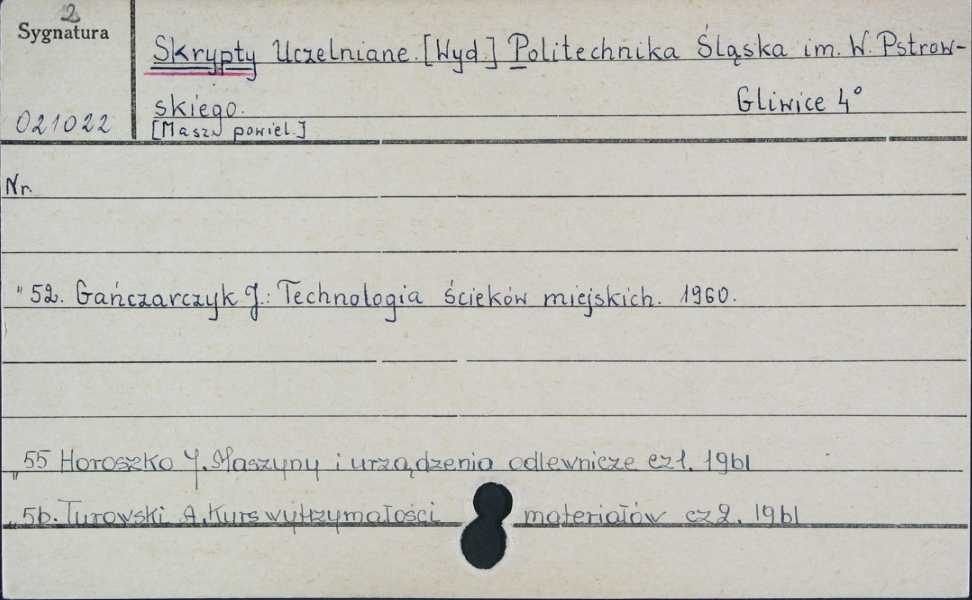 2
Sygnatura
Skrypty Uczelniane. [Wyd.] Politechnika Śląska im. W. Pstrow-
skiego. Gliwice 4°
021022
[Masz. powiel.]
Nr.
" 52. Gańczarczyk J.: Technologia ścieków miejskich. 1960.
" 55 Horoszko J. Maszyny i urządzenia odlewnicze cz1. 1961
" 56. Turowski A. Kurs wytrzymałości materiałów cz 2. 1961